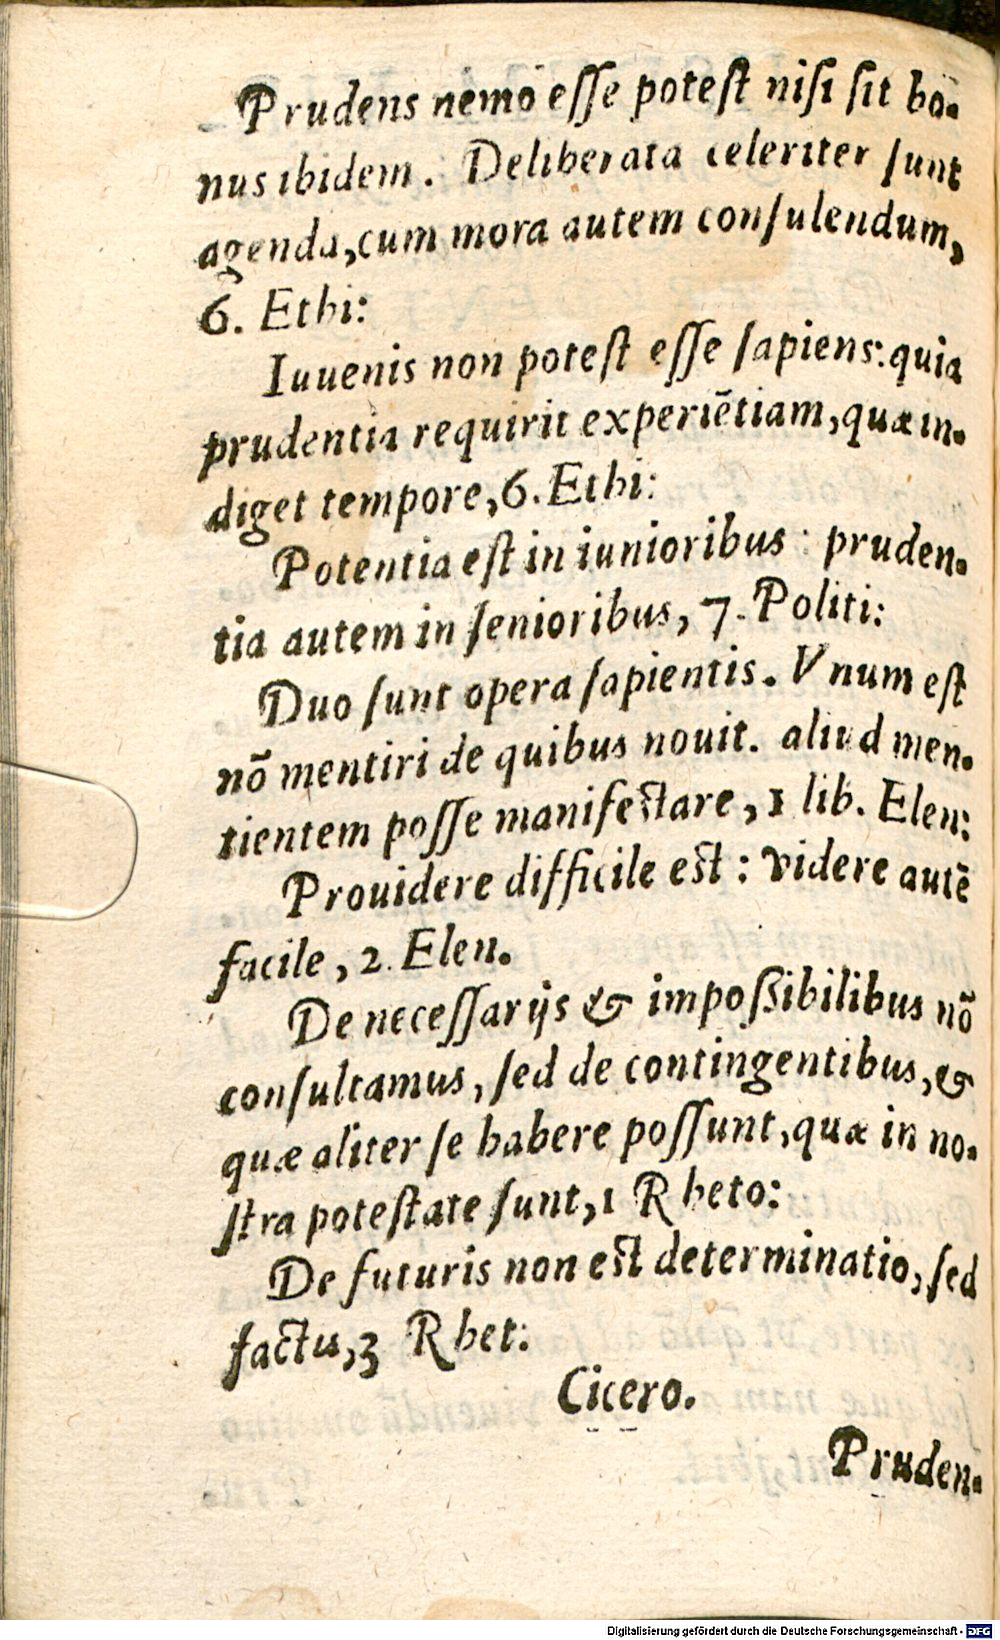 Prudens nemo eſſe poteſt niſi ſit bo-
nus ibidem. Deliberata celeriter ſunt
agenda, cum mora autem conſulendum,
6. Ethi:
Iuuenis non poteſt eſſe ſapiens: quia
prudentia requirit experiētiam, quæ in-
diget tempore, 6. Ethi:
Potentia eſt in iunioribus : pruden-
tia autem in ſenioribus, 7. Politi:
Duo ſunt opera ſapientis. Vnum eſt
nō mentiri de quibus nouit. aliud men-
tientem poſſe manifeſtare, 1 lib. Elen:
Prouidere difficile eſt : videre autē
facile, 2. Elen.
De neceſſarijs & impoſsibilibus nō
conſultamus, ſed de contingentibus, &
quæ aliter ſe habere poſſunt, quæ in no-
ſtra poteſtate ſunt, 1 Rheto:
De futuris non eſt determinatio, ſed
factu, 3 Rhet:
Cicero.
Pruden-
Digitalisierung gefördert durch die Deutsche Forschungsgemeinschaft - DFG